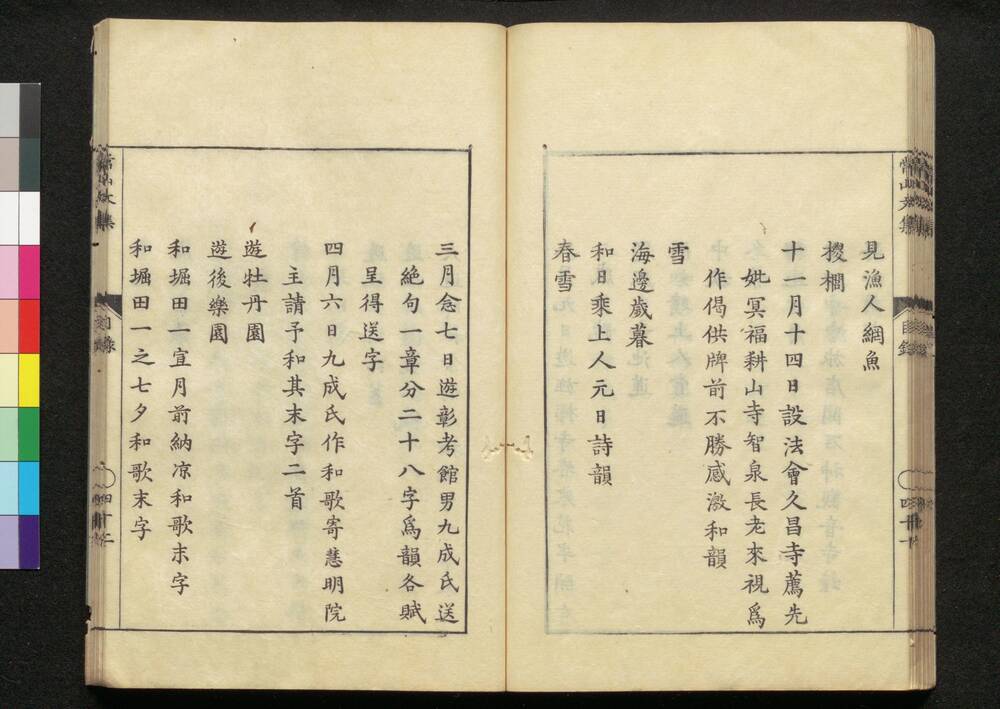 見漁人網魚
椶櫚
十一月十四日設法會久昌寺薦先
妣冥福耕山寺智泉長老來視爲
作偈供牌前不勝感激和韻
雪
海邊歲暮
和日乘上人元日詩韻
春雪
目錄
四十一
三月念七日遊彰考館男九成氏送
絶句一章分二十八字爲韻各賦
呈得送字
四月六日九成氏作和歌寄慧明院
主請予和其末字二首
遊牡丹園
遊後樂園
和堀田一宜月前納凉和歌末字
和堀田一之七夕和歌末字
常山文集
目錄